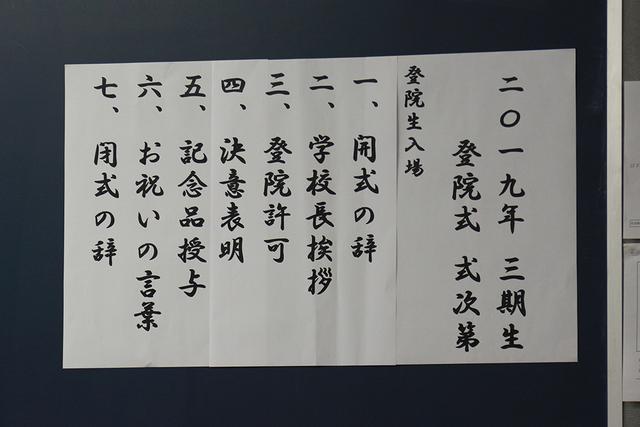 二〇一九年 三期生
登院式 式次第
登院生入場
一、開式の辞
二、学校長挨拶
三、登院許可
四、決意表明
五、記念品授与
六、お祝いの言葉
七、閉式の辞